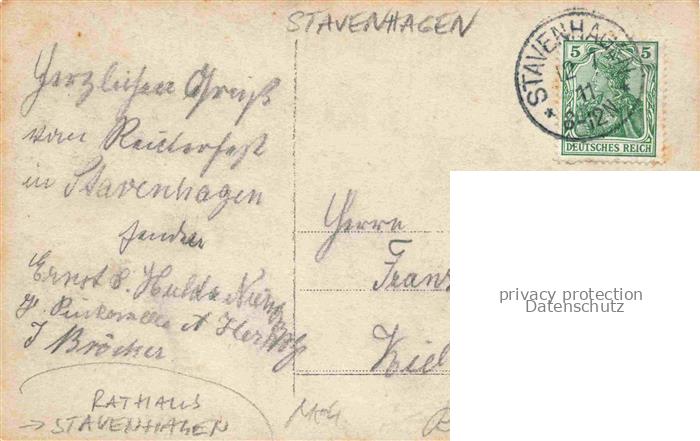 STAVENHAGEN
STAVENHAGEN
12. 7.
11.
8-12N
5 5
DEUTSCHES REICH
Herzlichen Gruß
vom Reuterfest
in Stavenhagen
senden
Ernst & Hulda
H.
J Bröcker
Herrn
Franz
Kiel
privacy protection
Datenschutz
RATHAUS
→ STAVENHAGEN